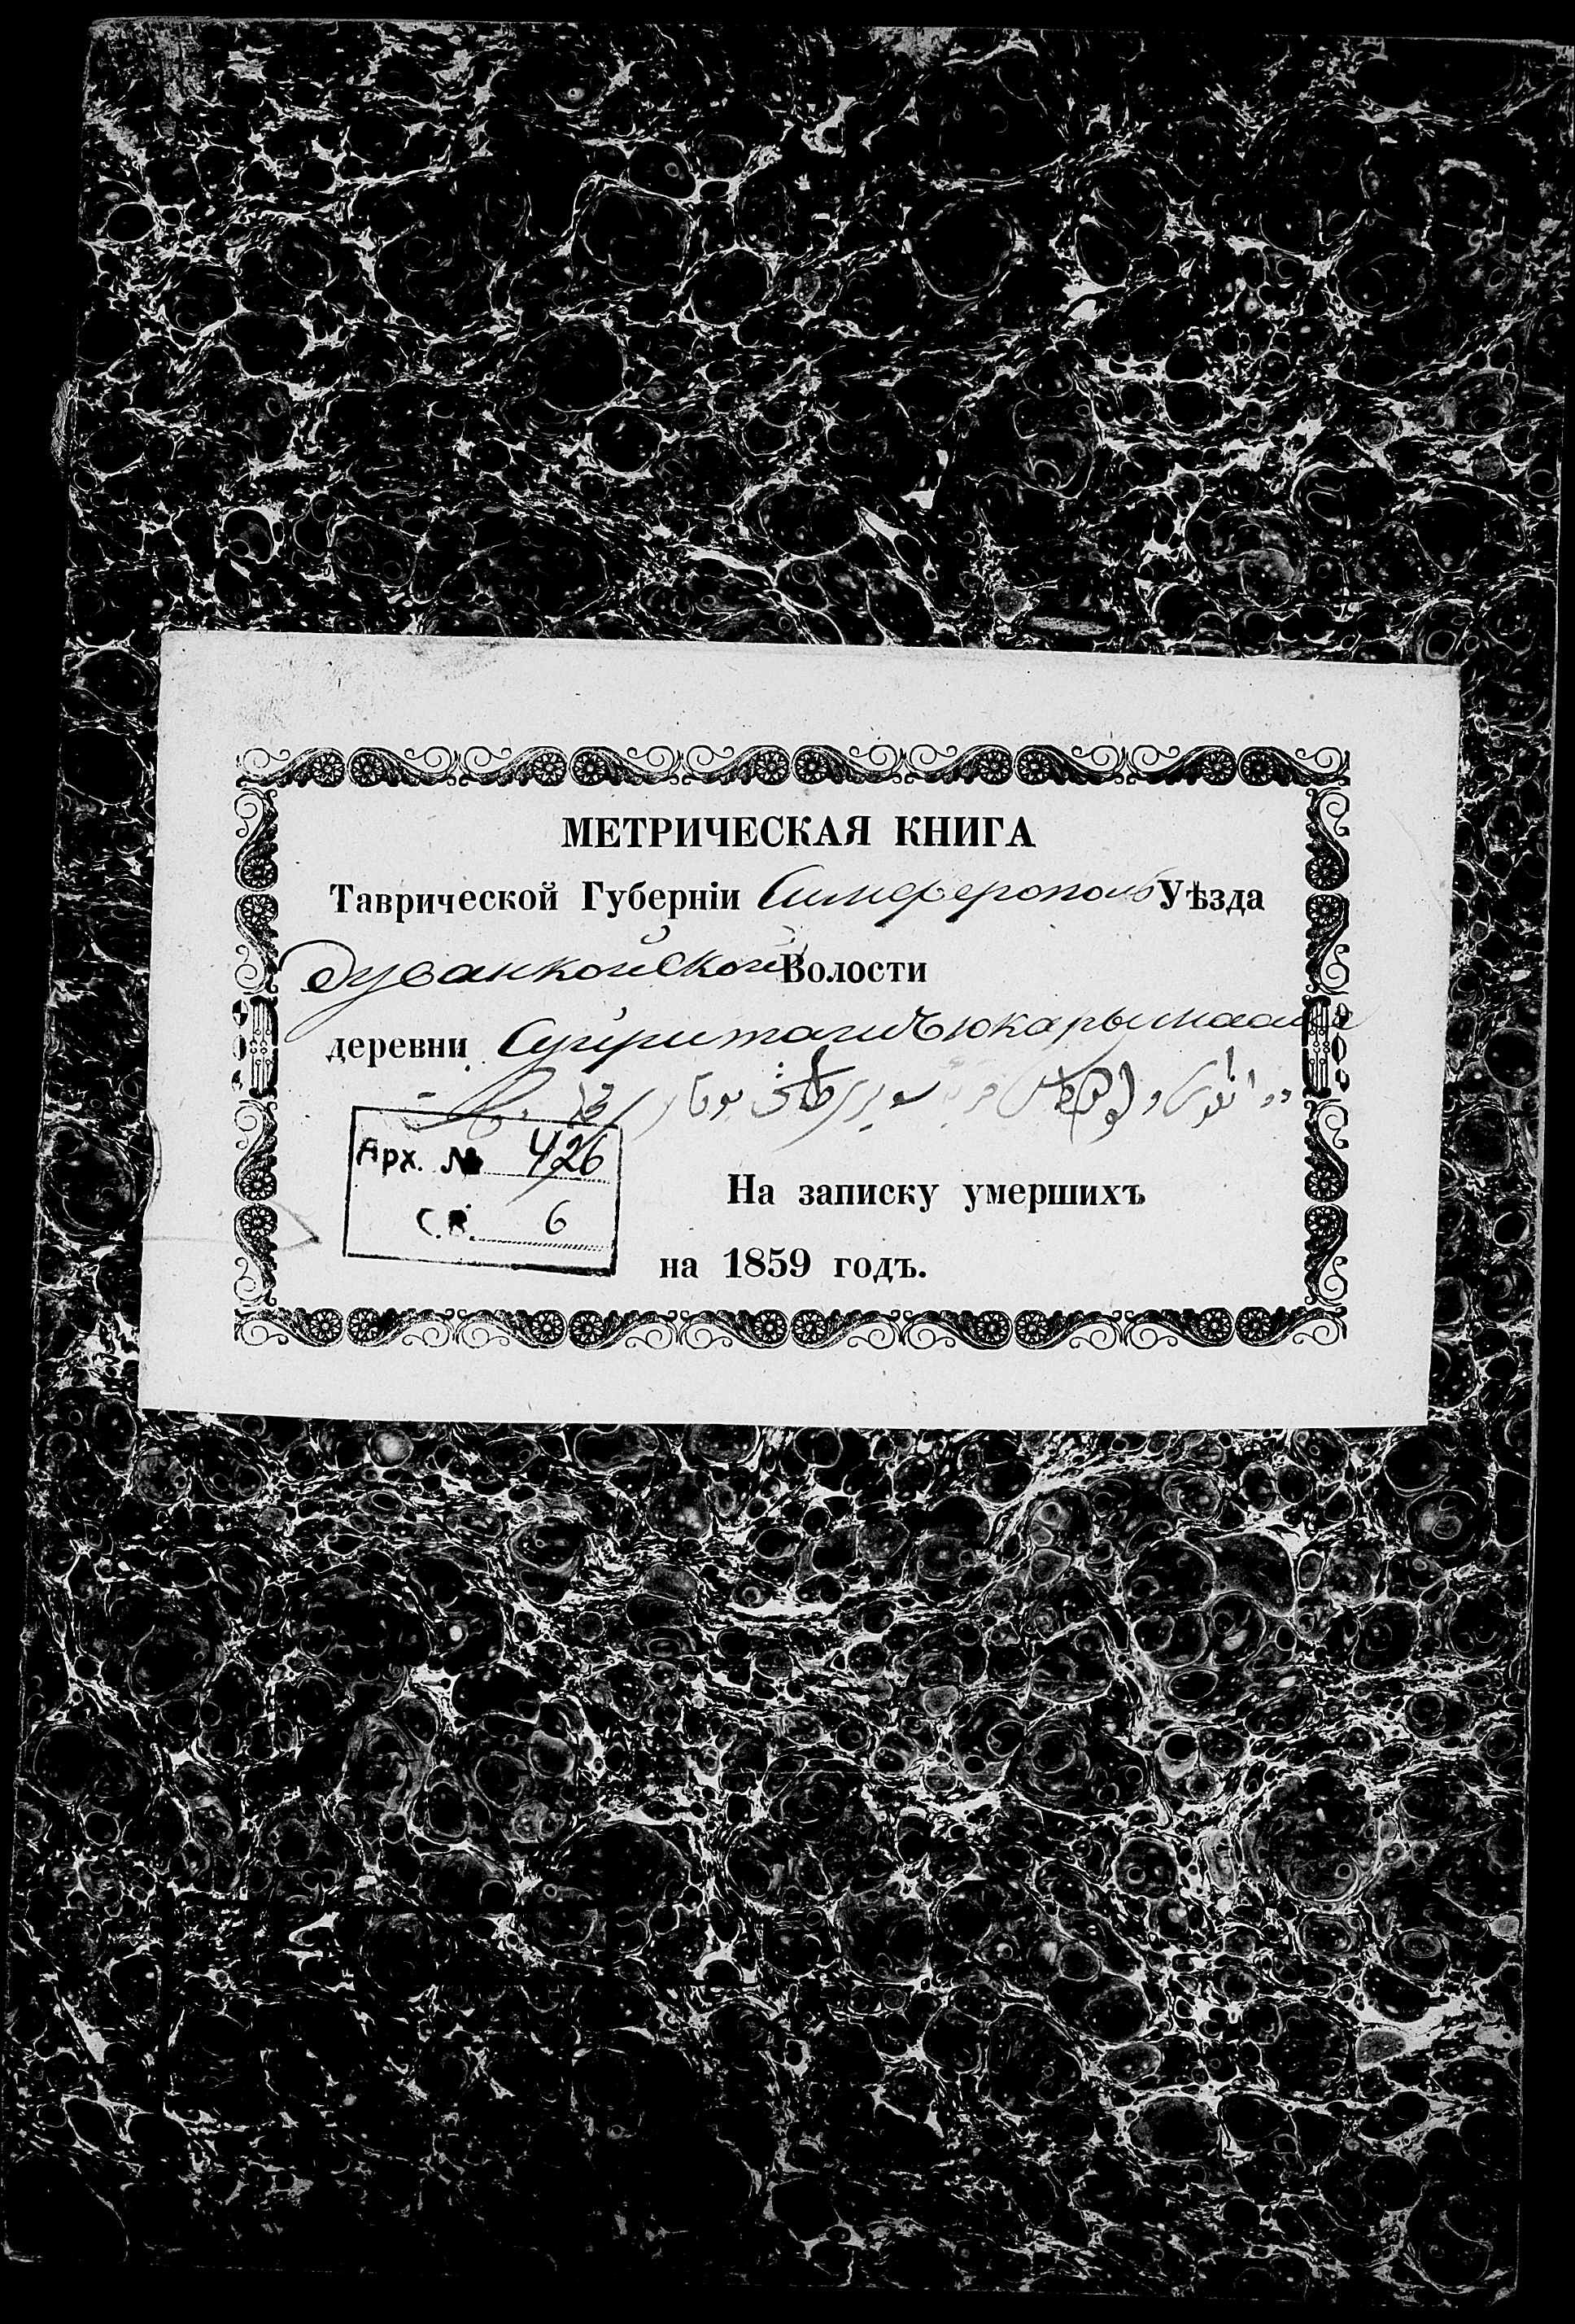 МЕТРИЧЕСКАЯ КНИГА
Таврической Губерніи Симферополь Уѣзда
Дуванкойской Волости
деревни
Арх. № 426
С.В. 6
На записку умершихъ
на 1859 годъ.